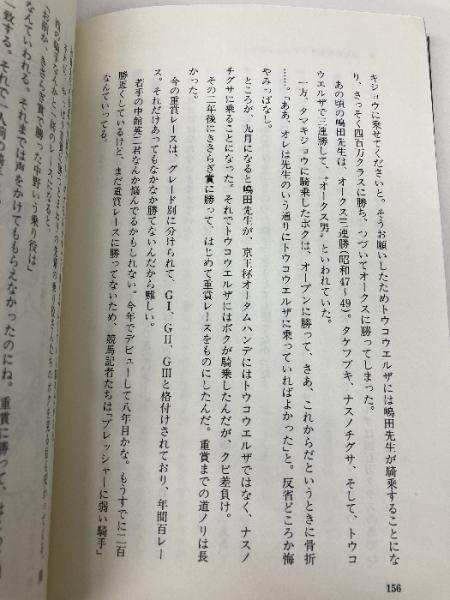 キジョウに乗せてくださいと。そうお願いしたためトウコウエルザには嶋田先生が騎乗することにな
り、さっそく四百万クラスに勝ち、つづいてオークスに勝ってしまった。
あの頃の嶋田先生は、オークス三連勝(昭和47〜49)。タケフブキ、ナスノチグサ、そして、トウコ
ウエルザで三連勝して、〝オークス男〟といわれていた。
一方、タマキジョウに騎乗したボクは、オープンに勝って、さあ、これからだというときに骨折
……。「ああ、オレは先生のいう通りにトウコウエルザに乗っていればよかった」と。反省どころか悔
やみっぱなし。
ところが、九月になると嶋田先生が、京王杯オータムハンデにはトウコウエルザではなく、ナスノ
チグサに乗ることになった。それでトウコウエルザにはボクが騎乗したんだが、クビ差負け。
その二年後にきさらぎ賞に勝って、はじめて重賞レースをものにしたんだ。重賞までの道ノリは長
かった。
今の重賞レースは、グレード別に分けられて、GⅠ、GⅡ、GⅢと格付けされており、年間百レー
ス。それだけあってもなかなか勝てないんだから難しい。
若手の中舘英二君なんか悩んでるかもしれない。今年でデビューして八年目かな。もうすでに二百
勝近くしているけど、まだ重賞レースに勝ってないため、競馬記者たちは「プレッシャーに弱い騎手」
なんていってる。
156
「お前が、きさらぎ賞で勝った中野という乗り役は」
なんていわれる。それまでは声をかけてももらえなかったのにね。重賞に勝って、